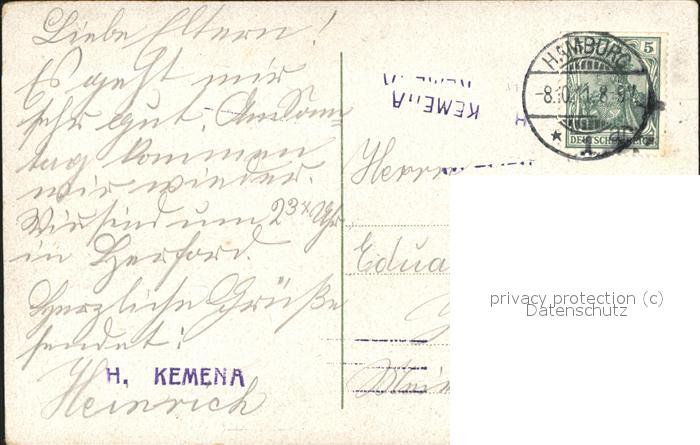 Liebe Eltern!
Es geht mir
sehr gut. Am Sonn=
tag kommen
wir wieder.
Wir sind um 2 34 Uhr
in Herford.
Herzliche Grüße
sendet:
Heinrich
H. KEMENA
KEMENA
HAMBURG
-8.10.11. 8-9
* 1
5
DEUTSCHES REICH
Herrn
Edua
privacy protection (c)
Datenschutz